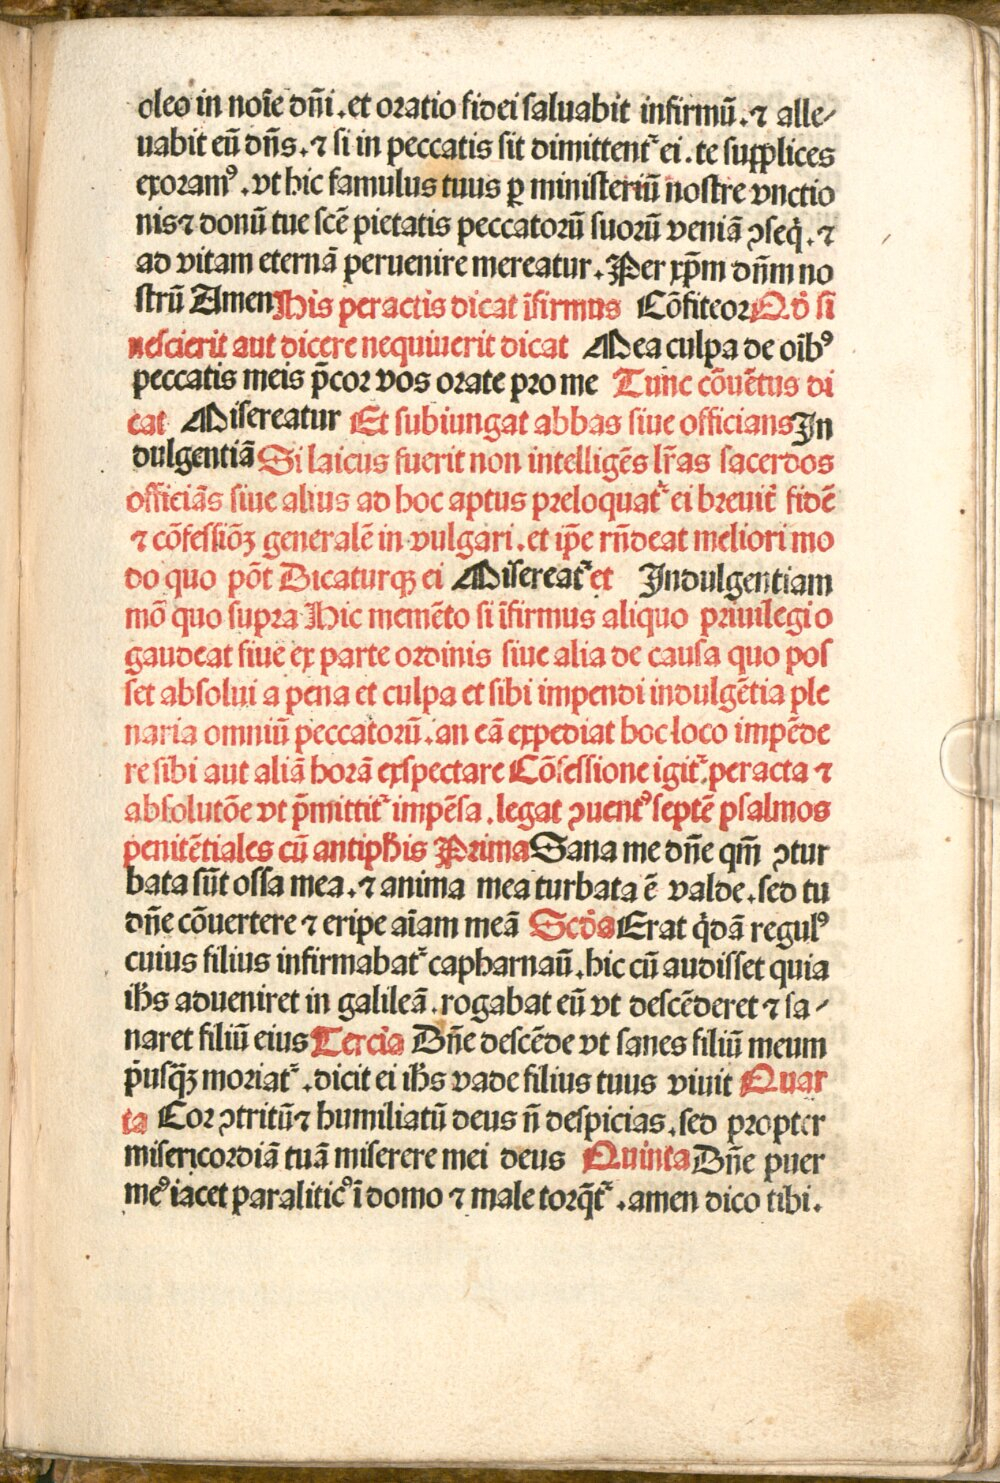 oleo in noīe dn̄i. et oratio fidei saluabit infirmū. ⁊ alle⸗
uabit eū dn̄s. ⁊ si in peccatis sit dimittentᷣ ei. te supplices
exoramꝰ. vt hic famulus tuus ꝑ ministeriū nostre vnctio
nis ⁊ donū tue scē pietatis peccatorū suorū veniā ꝯseq̄. ⁊
ad vitam eternā peruenire mereatur. Per xp̄m dn̄m no
strū Amen His peractis dicat īfirmus Cōfiteor Qđ si
nescierit aut dicere nequiuerit dicat Mea culpa de oīb⁹
peccatis meis p̄cor vos orate pro me Tunc cōuētus di
cat Misereatur Et subiungat abbas siue officians In
dulgentiā Si laicus fuerit non intelligēs lr̄as sacerdos
officiās siue alius ad hoc aptus preloquatᷣ ei breuit̄ fidē
⁊ cōfessiōꝫ generalē in vulgari. et ip̄e rn̄deat meliori mo
do quo pōt Dicaturqꝫ ei Misereatᷣ et Indulgentiam
mō quo supra Hic memēto si īfirmus aliquo priuilegio
gaudeat siue ex parte ordinis siue alia de causa quo pos
set absolui a pena et culpa et sibi impendi indulgētia ple
naria omniū peccatorū. an eā expediat hoc loco impēde
re sibi aut aliā horā exspectare Cōfessione igitᷣ peracta ⁊
absolutōe vt p̄mittitᷣ impēsa. legat ꝯuentꝰ septē psalmos
penitētiales cū antiph̄is Prima Sana me dn̄e qm̄ ꝯtur
bata sūt ossa mea. ⁊ anima mea turbata ē valde. sed tu
dn̄e cōuertere ⁊ eripe aīam meā Scđa Erat q̄dā regulꝰ
cuius filius infirmabatᷣ capharnaū. hic cū audisset quia
ih̄s adueniret in galileā. rogabat eū vt descēderet ⁊ sa⸗
naret filiū eius Tercia Dn̄e descēde vt sanes filiū meum
p̄usq̄ꝫ moriatᷣ. dicit ei ih̄s vade filius tuus viuit Quar
ta Cor ꝯtritū ⁊ humiliatū deus n̄ despicias. sed propter
misericordiā tuā miserere mei deus Quinta Dn̄e puer
meꝰ iacet paraliticꝰ ī domo ⁊ male torq̄tᷣ. amen dico tibi.